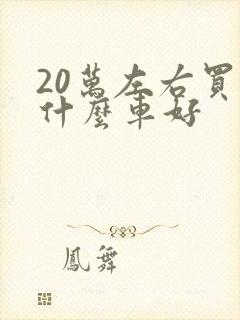 20萬左右買
什麼車好
鳳舞